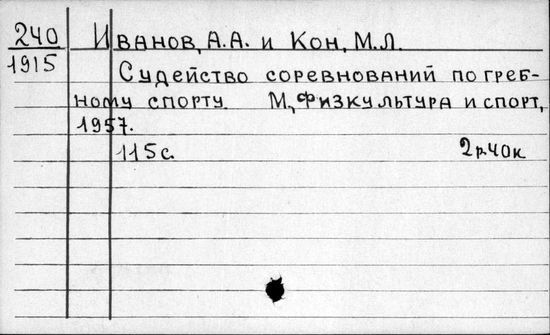 240 Иванов, А.А. и Кон, М.Л.
1915 Судейство соревнований по греб-
ному спорту М, Физкультура и спорт,
1957.
115с. 2р.40к